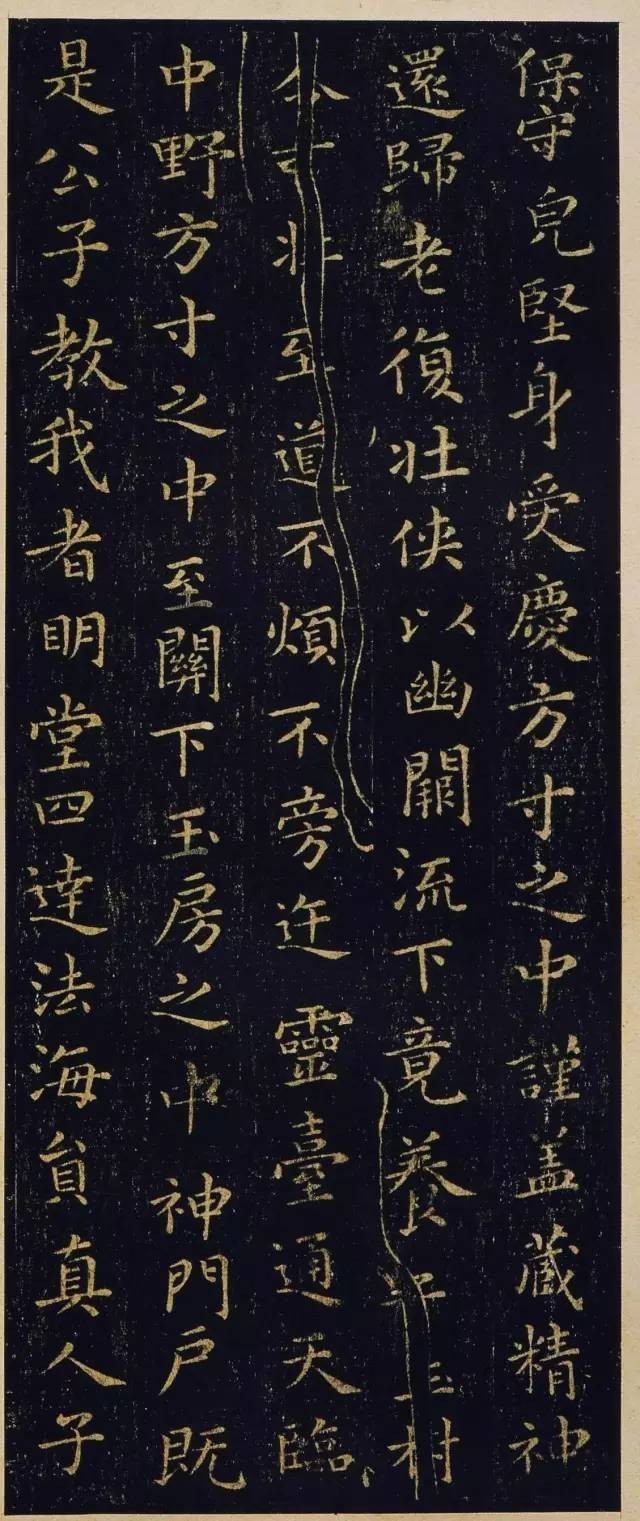 保守皃堅身受慶方寸之中謹盖藏精神
還歸老復壮侠以幽闕流下竟養玉樹
令可壮至道不煩不旁迕靈臺通天臨
中野方寸之中至關下玉房之中神門户既
是公子教我者明堂四達法海員真人子